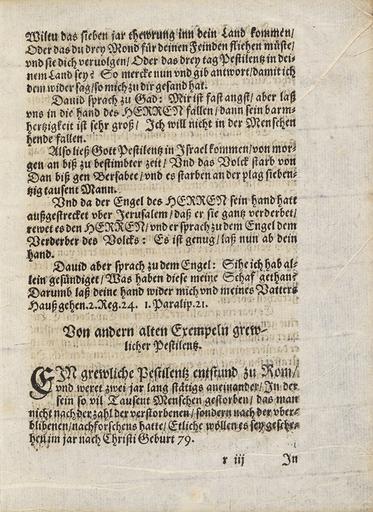 Wilcu das sieben jar thewrung inn dein Land kommen/
Oder das du drey Mond für deinen Feinden fliehen müste/
vnd sie dich veruolgen/ Oder das drey tag Pestilentz in dei-
nem Land sey? So mercke nun vnd gib antwort/ damit ich
dem wider sag/ so mich zu dir gesand hat.
Dauid sprach zu Gad: Mir ist fast angst/ aber laß
vns in die hand des HERREN fallen/ dann sein barm-
hertzigkeit ist sehr groß/ Ich will nicht in der Menschen
hende fallen.
Also ließ Gott Pestilentz in Israel kommen/ von mor-
gen an biß zu bestimbter zeit/ Vnd das Volck starb von
Dan biß gen Bersabee/ vnd es starben an der plag sieben-
tzig tausent Mann.
Vnd da der Engel des HERREN sein hand hatt
außgestrecket vber Jerusalem/ daß er sie gantz verderbet/
rewet es den HERREN/ vnd er sprach zu dem Engel dem
Verderber des Volcks: Es ist genug/ laß nun ab dein
hand.
Dauid aber sprach zu dem Engel: Sihe ich hab al-
lein gesündiget/ Was haben diese meine Schaf gethan?
Darumb laß deine hand wider mich vnd meines Vatters
Hauß gehen. 2. Reg. 24. 1. Paralip. 21.
Von andern alten Exempeln grew-
licher Pestilentz.
EIN grewliche Pestilentz entstund zu Rom/
vnd weret zwei jar lang stätigs aneinander/ In der
sein so vil Tausent Menschen gestorben/ das man
nicht nach der zahl der verstorbenen/ sondern nach der vber-
blibenen/ nachforschens hatte/ Etliche wöllen es sey gesche-
hen im jar nach Christi Geburt 79.
r iij In